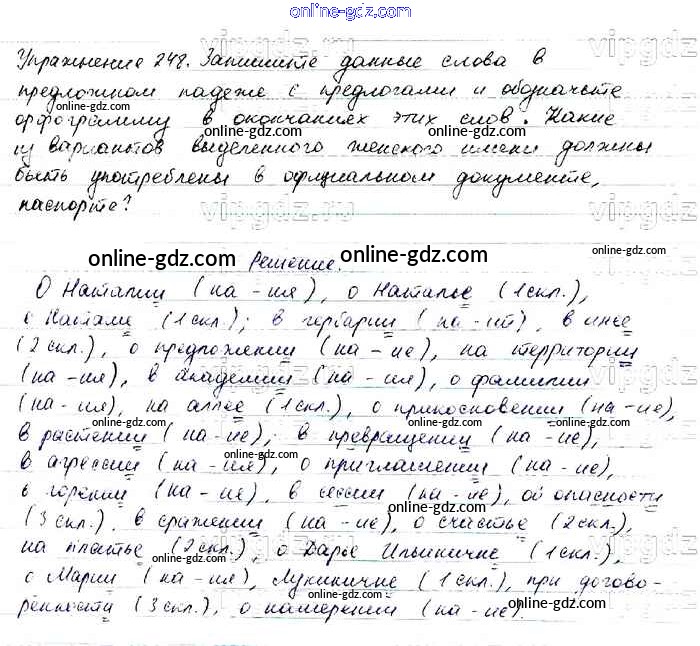 online-gdz.com
Упражнение 248. Запишите данные слова в
предложном падеже с предлогами и обозначьте
орфограмму в окончаниях этих слов. Какие
из вариантов выделенного женского имени должны
быть употреблены в официальном документе,
паспорте?
Решение.
О Наталии (на -ия), о Наталье (1 скл.),
о Наташе (1 скл.); в гербарии (на -ий), в инее
(2 скл.), о предложении (на -ие), на территории
(на -ия), в академии (на -ия), о фамилии
(на -ия), на аллее (1 скл.), о прикосновении (на -ие),
в растении (на -ие), в превращении (на -ие),
в агрессии (на -ия), о приглашении (на -ие),
в горении (на -ие), в сессии (на -ие), об опасности
(3 скл.), в сражении (на -ие), о счастье (2 скл.),
на платье (2 скл.), о Дарье Ильиничне (1 скл.),
о Марии (на -ия), Лукиничне (1 скл.), при догово-
ренности (3 скл.), о намерении (на -ие).